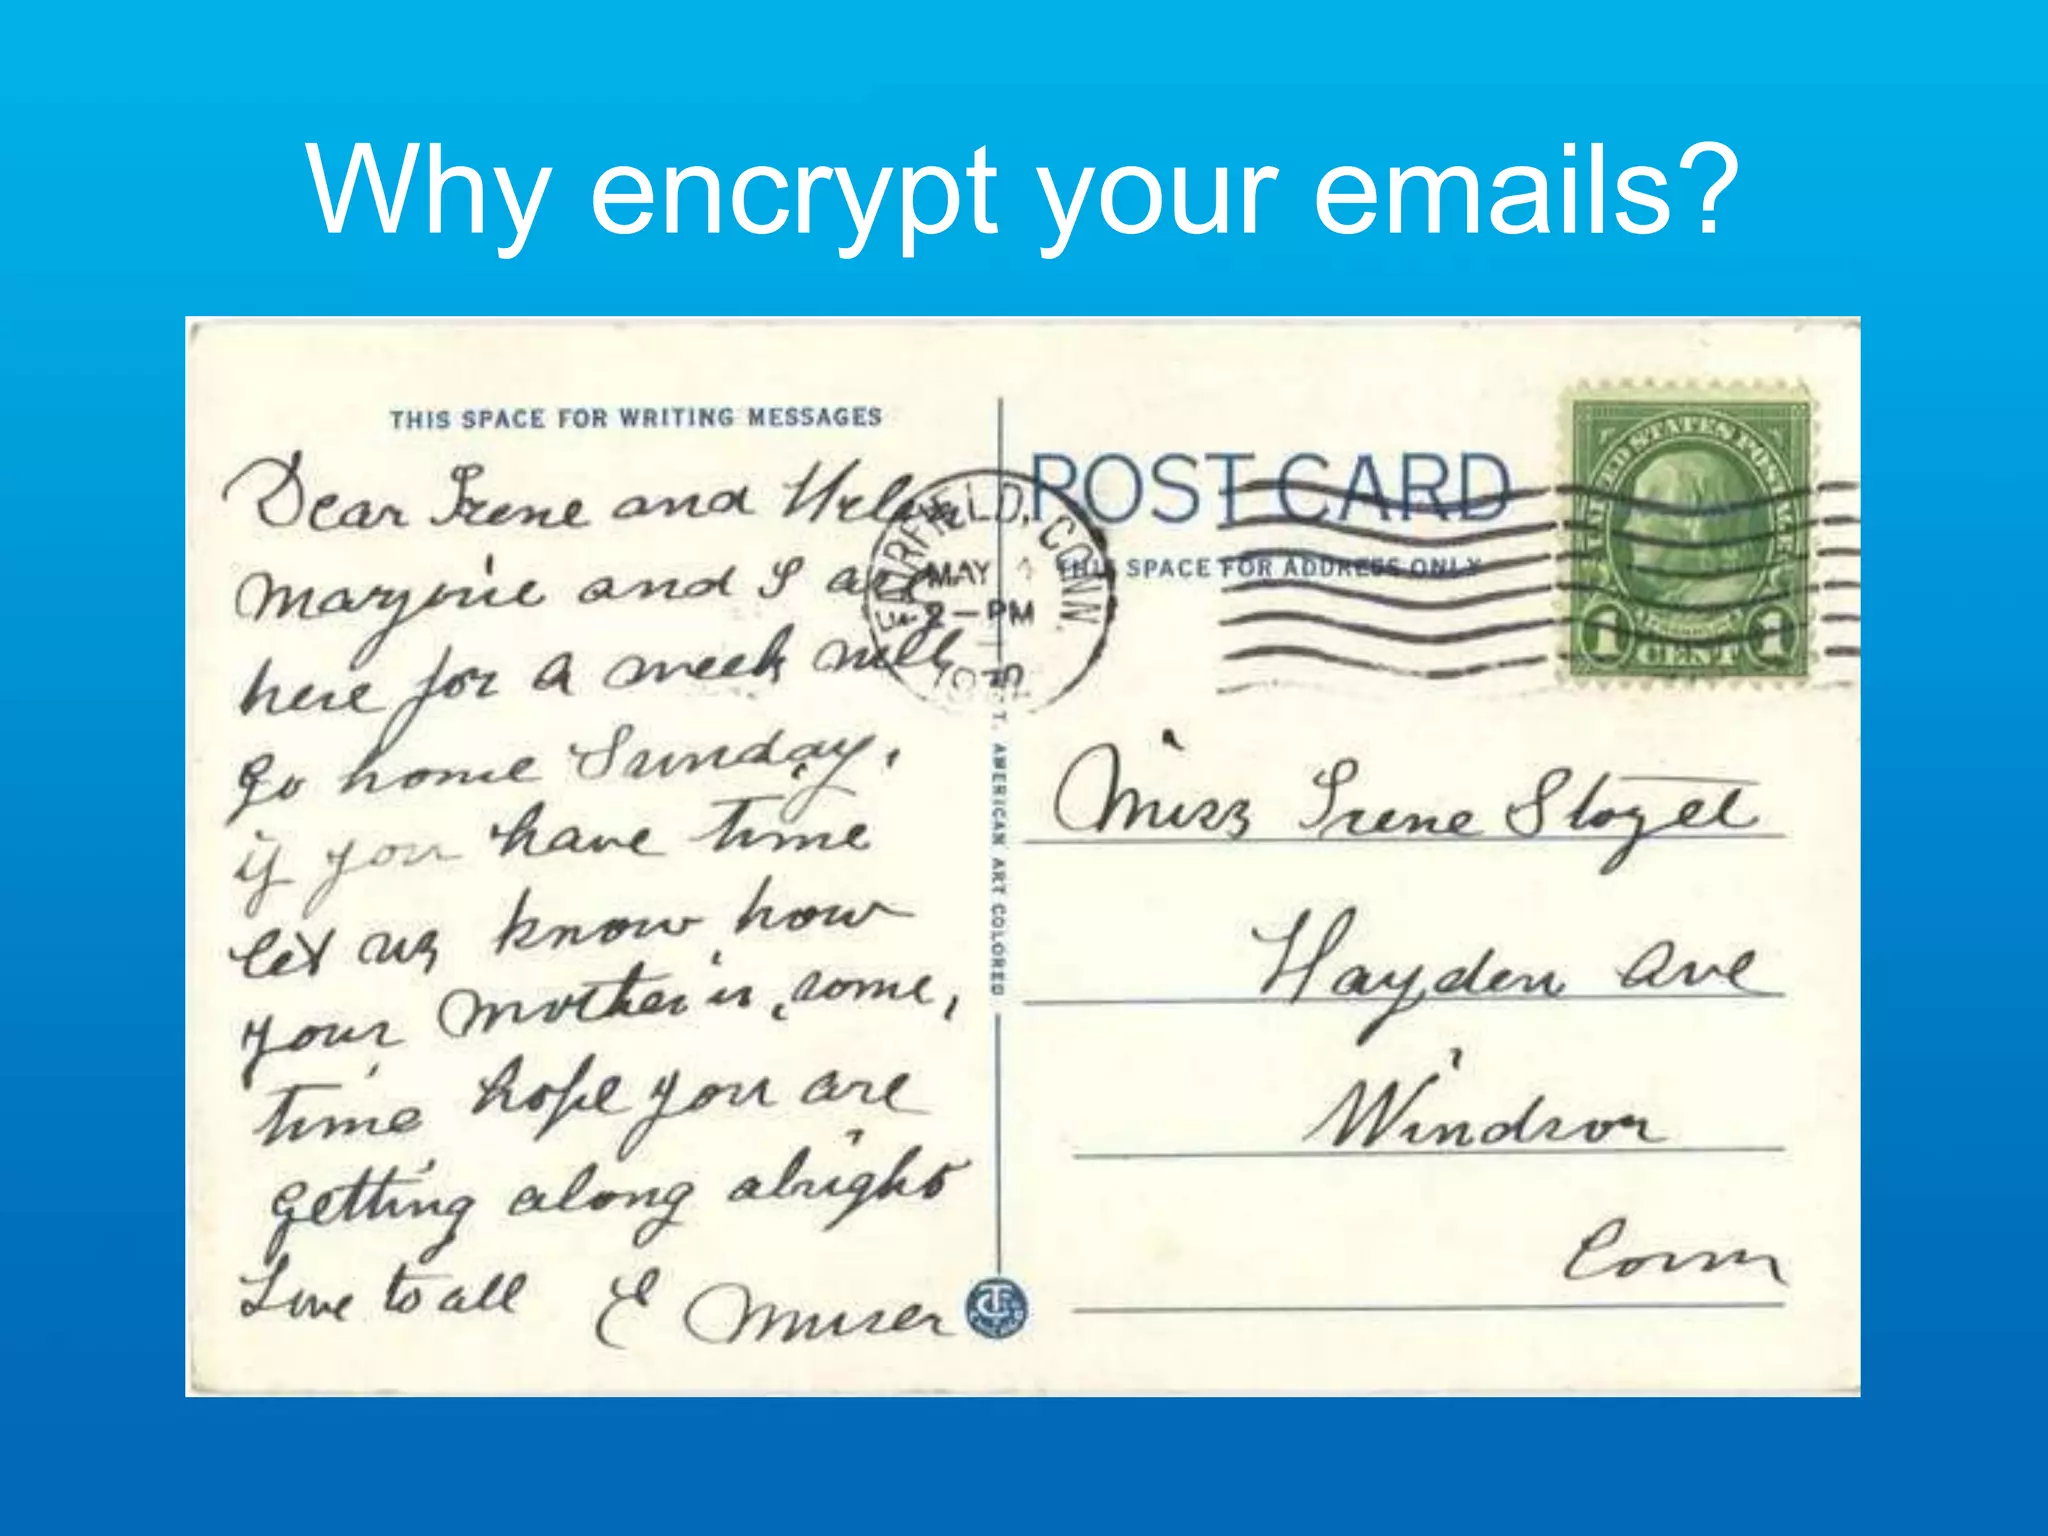 Why encrypt your emails?
THIS SPACE FOR WRITING MESSAGES
Dear Irene and Helen
Marjorie and I are
here for a week will
go home Sunday,
if you have time
let us know how
your mother is, some,
time, hope you are
getting along alright
Love to all E Muser
FAIRFIELD, CONN.
MAY 4
2-PM
C. T. AMERICAN ART COLORED
POST CARD
THIS SPACE FOR ADDRESS ONLY
UNITED STATES POSTAGE
1 CENT 1
Miss Irene Stogel
Hayden Ave
Windsor
Conn